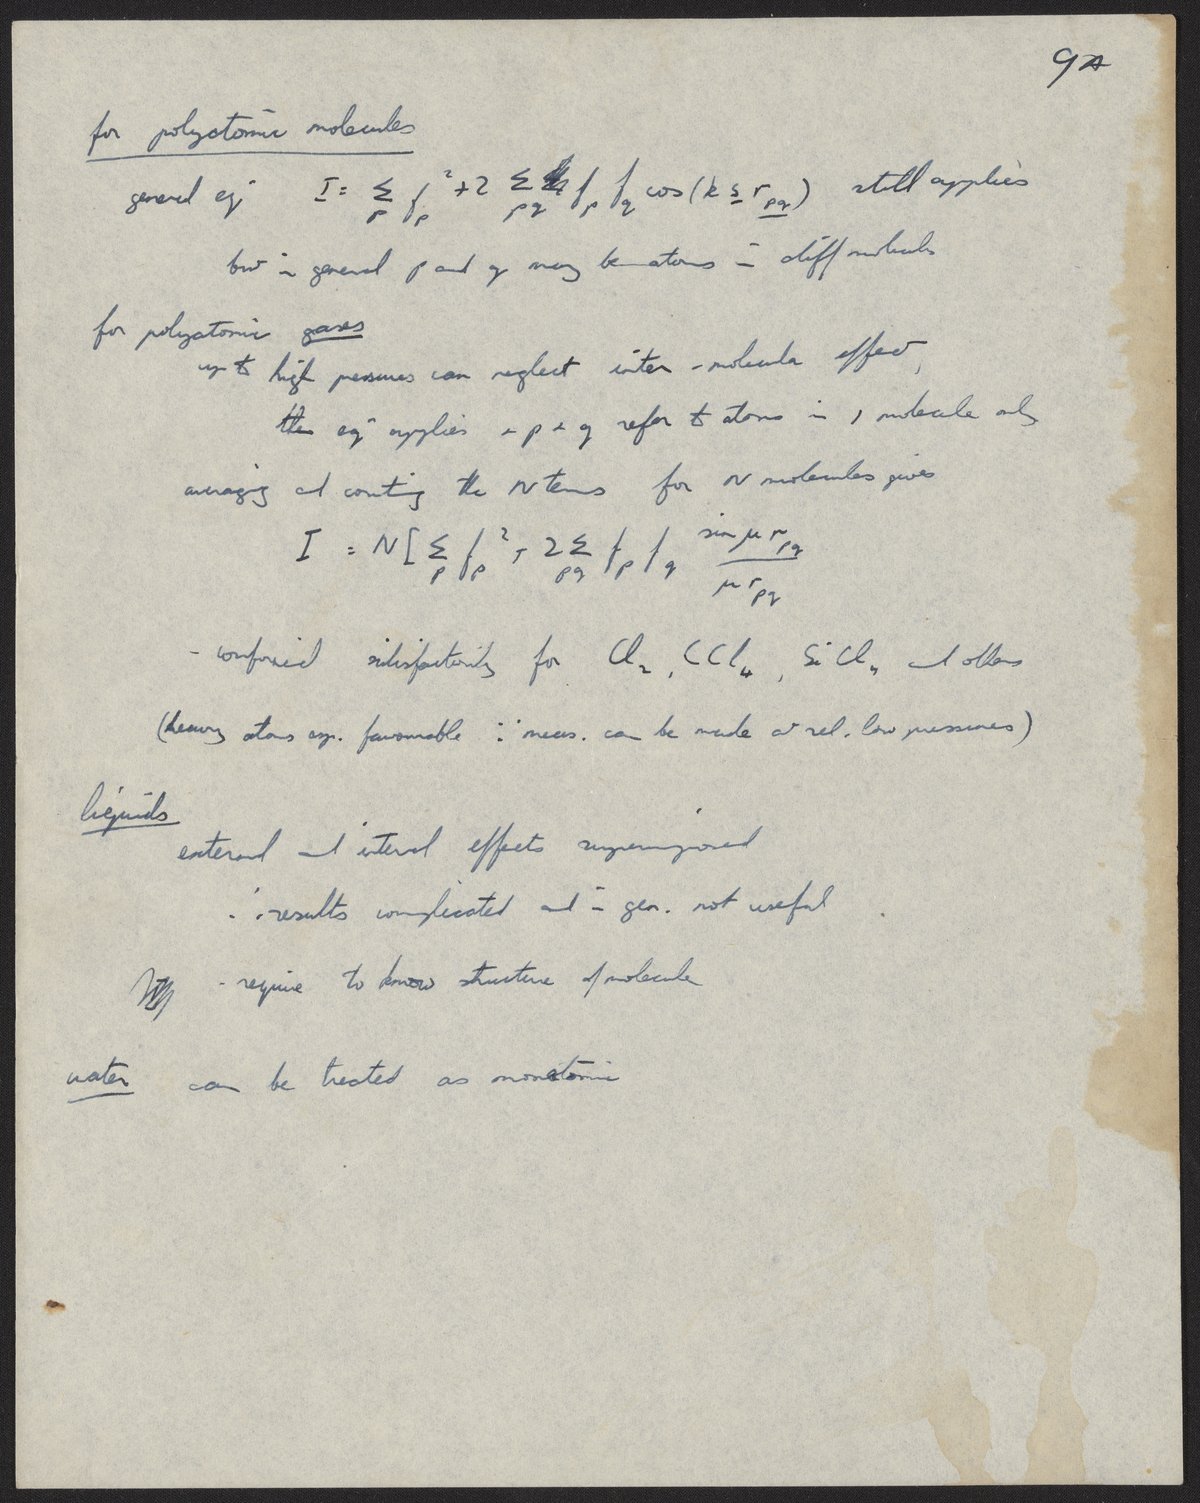 9A
for polyatomic molecules
general eqn I = Σ_p f_p² + 2 Σ_pq f_p f_q cos(k s r_pq) still applies
but in general p and q may be atoms in diff molecules
for polyatomic gases
up to high pressures can neglect inter-molecular effect,
the eqn applies + p + q refer to atoms in 1 molecule only
averaging and counting the N terms for N molecules gives
I = N[Σ_p f_p² + 2 Σ_pq f_p f_q sin μ r_pq / μ r_pq
- confirmed satisfactorily for Cl₂, CCl₄, SiCl₄ and others
(heavy atoms esp. favourable ∵ meas. can be made at rel. low pressures)
liquids
external and internal effects superimposed
∴ results complicated and in gen. not useful
- require to know structure of molecule
water can be treated as monatomic